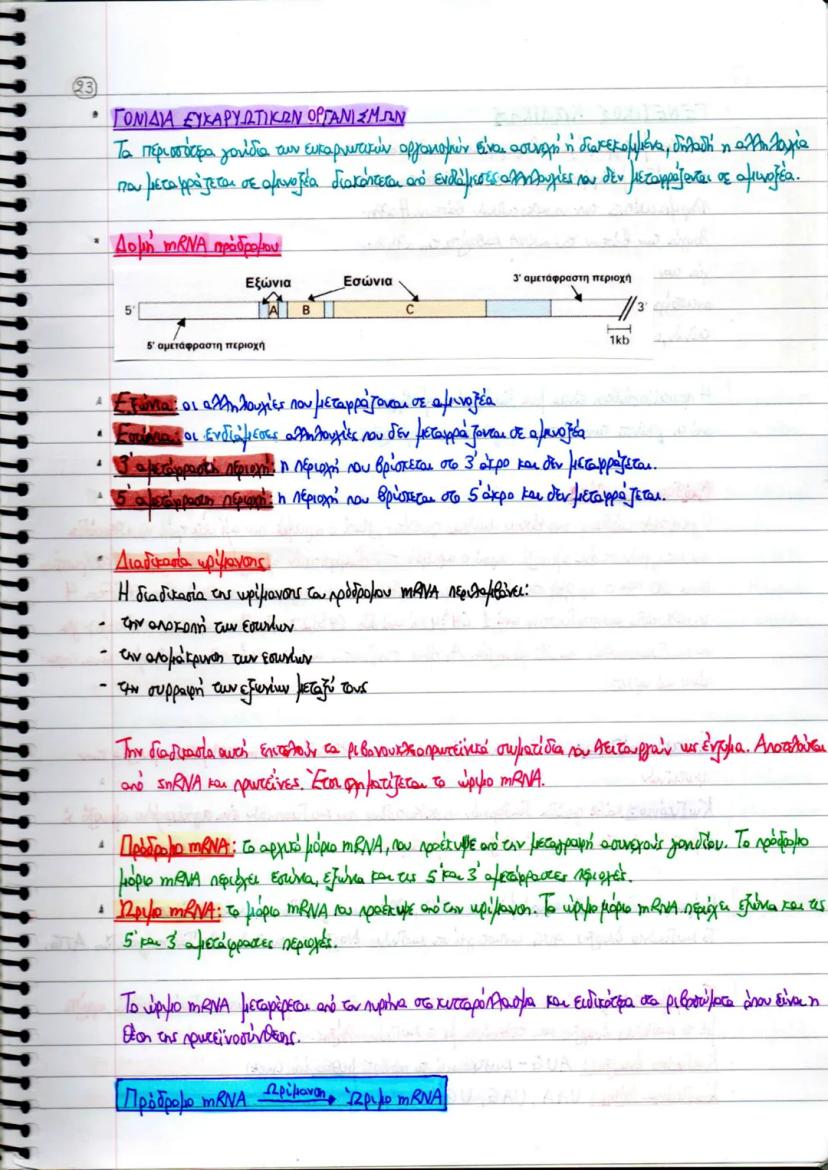 23
• ΓΟΝΙΔΙΑ ΕΥΚΑΡΥΩΤΙΚΩΝ ΟΡΓΑΝΙΣΜΩΝ
Τα περισσότερα γονίδια των ευκαρυωτικών οργανισμών είναι ασυνεχή ή διακεκομμένα, δηλαδή η αλληλουχία
που μεταφράζεται σε αμινοξέα διακόπτεται από ενδιάμεσες αλληλουχίες που δεν μεταφράζονται σε αμινοξέα.
• Δομή mRNA πρόδρομου
Εξώνια Εσώνια 3' αμετάφραστη περιοχή
5' A B C 3'
5' αμετάφραστη περιοχή 1kb
Εξώνια: οι αλληλουχίες που μεταφράζονται σε αμινοξέα
Εσώνια: οι ενδιάμεσες αλληλουχίες που δεν μεταφράζονται σε αμινοξέα
3' αμετάφραστη περιοχή: η περιοχή που βρίσκεται στο 3' άκρο και δεν μεταφράζεται.
5' αμετάφραστη περιοχή: η περιοχή που βρίσκεται στο 5' άκρο και δεν μεταφράζεται.
• Διαδικασία ωρίμανσης
Η διαδικασία της ωρίμανσης του πρόδρομου mRNA περιλαμβάνει:
- την αποκοπή των εσωνίων
- την απομάκρυνση των εσωνίων
- την συρραφή των εξωνίων μεταξύ τους
Την διαδικασία αυτή επιτελούν τα ριβονουκλεοπρωτεϊνικά σωματίδια που λειτουργούν ως ένζυμα. Αποτελούνται
από snRNA και πρωτεΐνες. Έτσι σχηματίζεται το ώριμο mRNA.
Πρόδρομο mRNA: το αρχικό μόριο mRNA, που προέκυψε από την μεταγραφή ασυνεχούς γονιδίου. Το πρόδρομο
μόριο mRNA περιέχει εσώνια, εξώνια και τις 5' και 3' αμετάφραστες περιοχές.
Ώριμο mRNA: το μόριο mRNA που προέκυψε από την ωρίμανση. Το ώριμο μόριο mRNA περιέχει εξώνια και τις
5' και 3' αμετάφραστες περιοχές.
Το ώριμο mRNA μεταφέρεται από τον πυρήνα στο κυτταρόπλασμα και ειδικότερα στα ριβοσώματα όπου είναι η
θέση της πρωτεϊνοσύνθεσης.
Πρόδρομο mRNA Ωρίμανση → Ώριμο mRNA